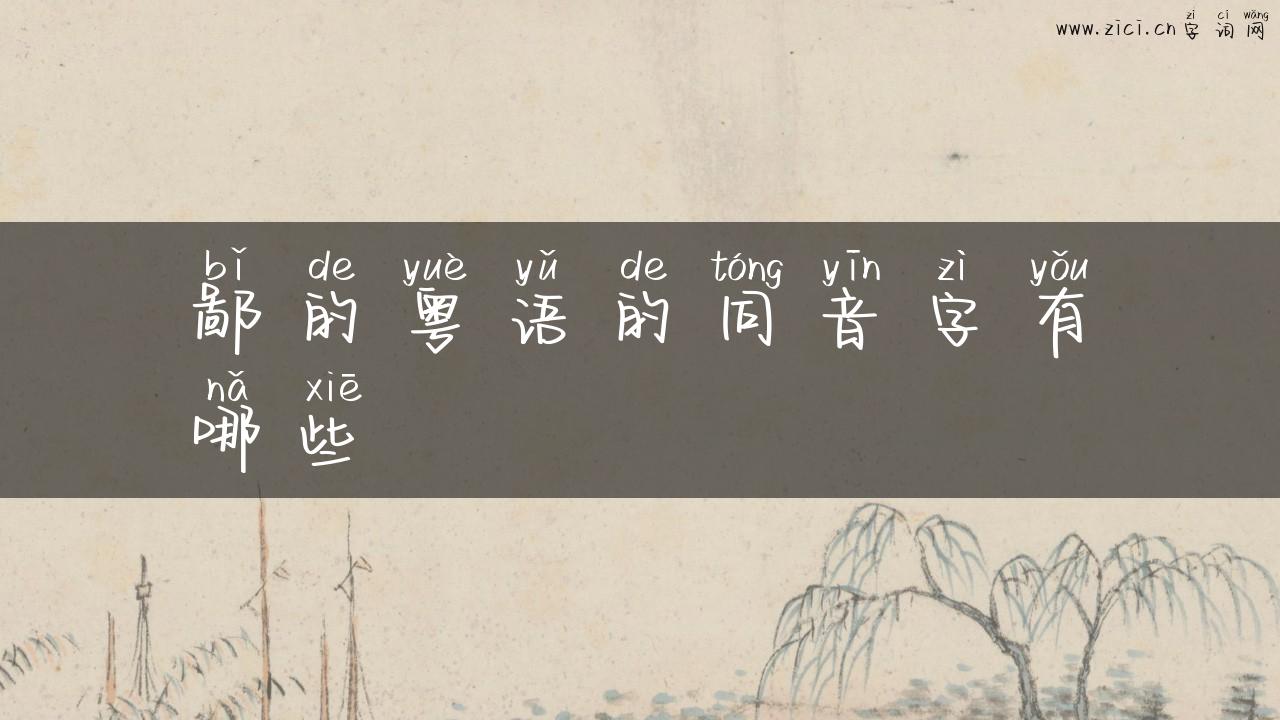 zì cí wǎng
www.zici.cn 字 词 网
bǐ de yuè yǔ de tóng yīn zì yǒu
鄙 的 粤 语 的 同 音 字 有
nǎ xiē
哪 些